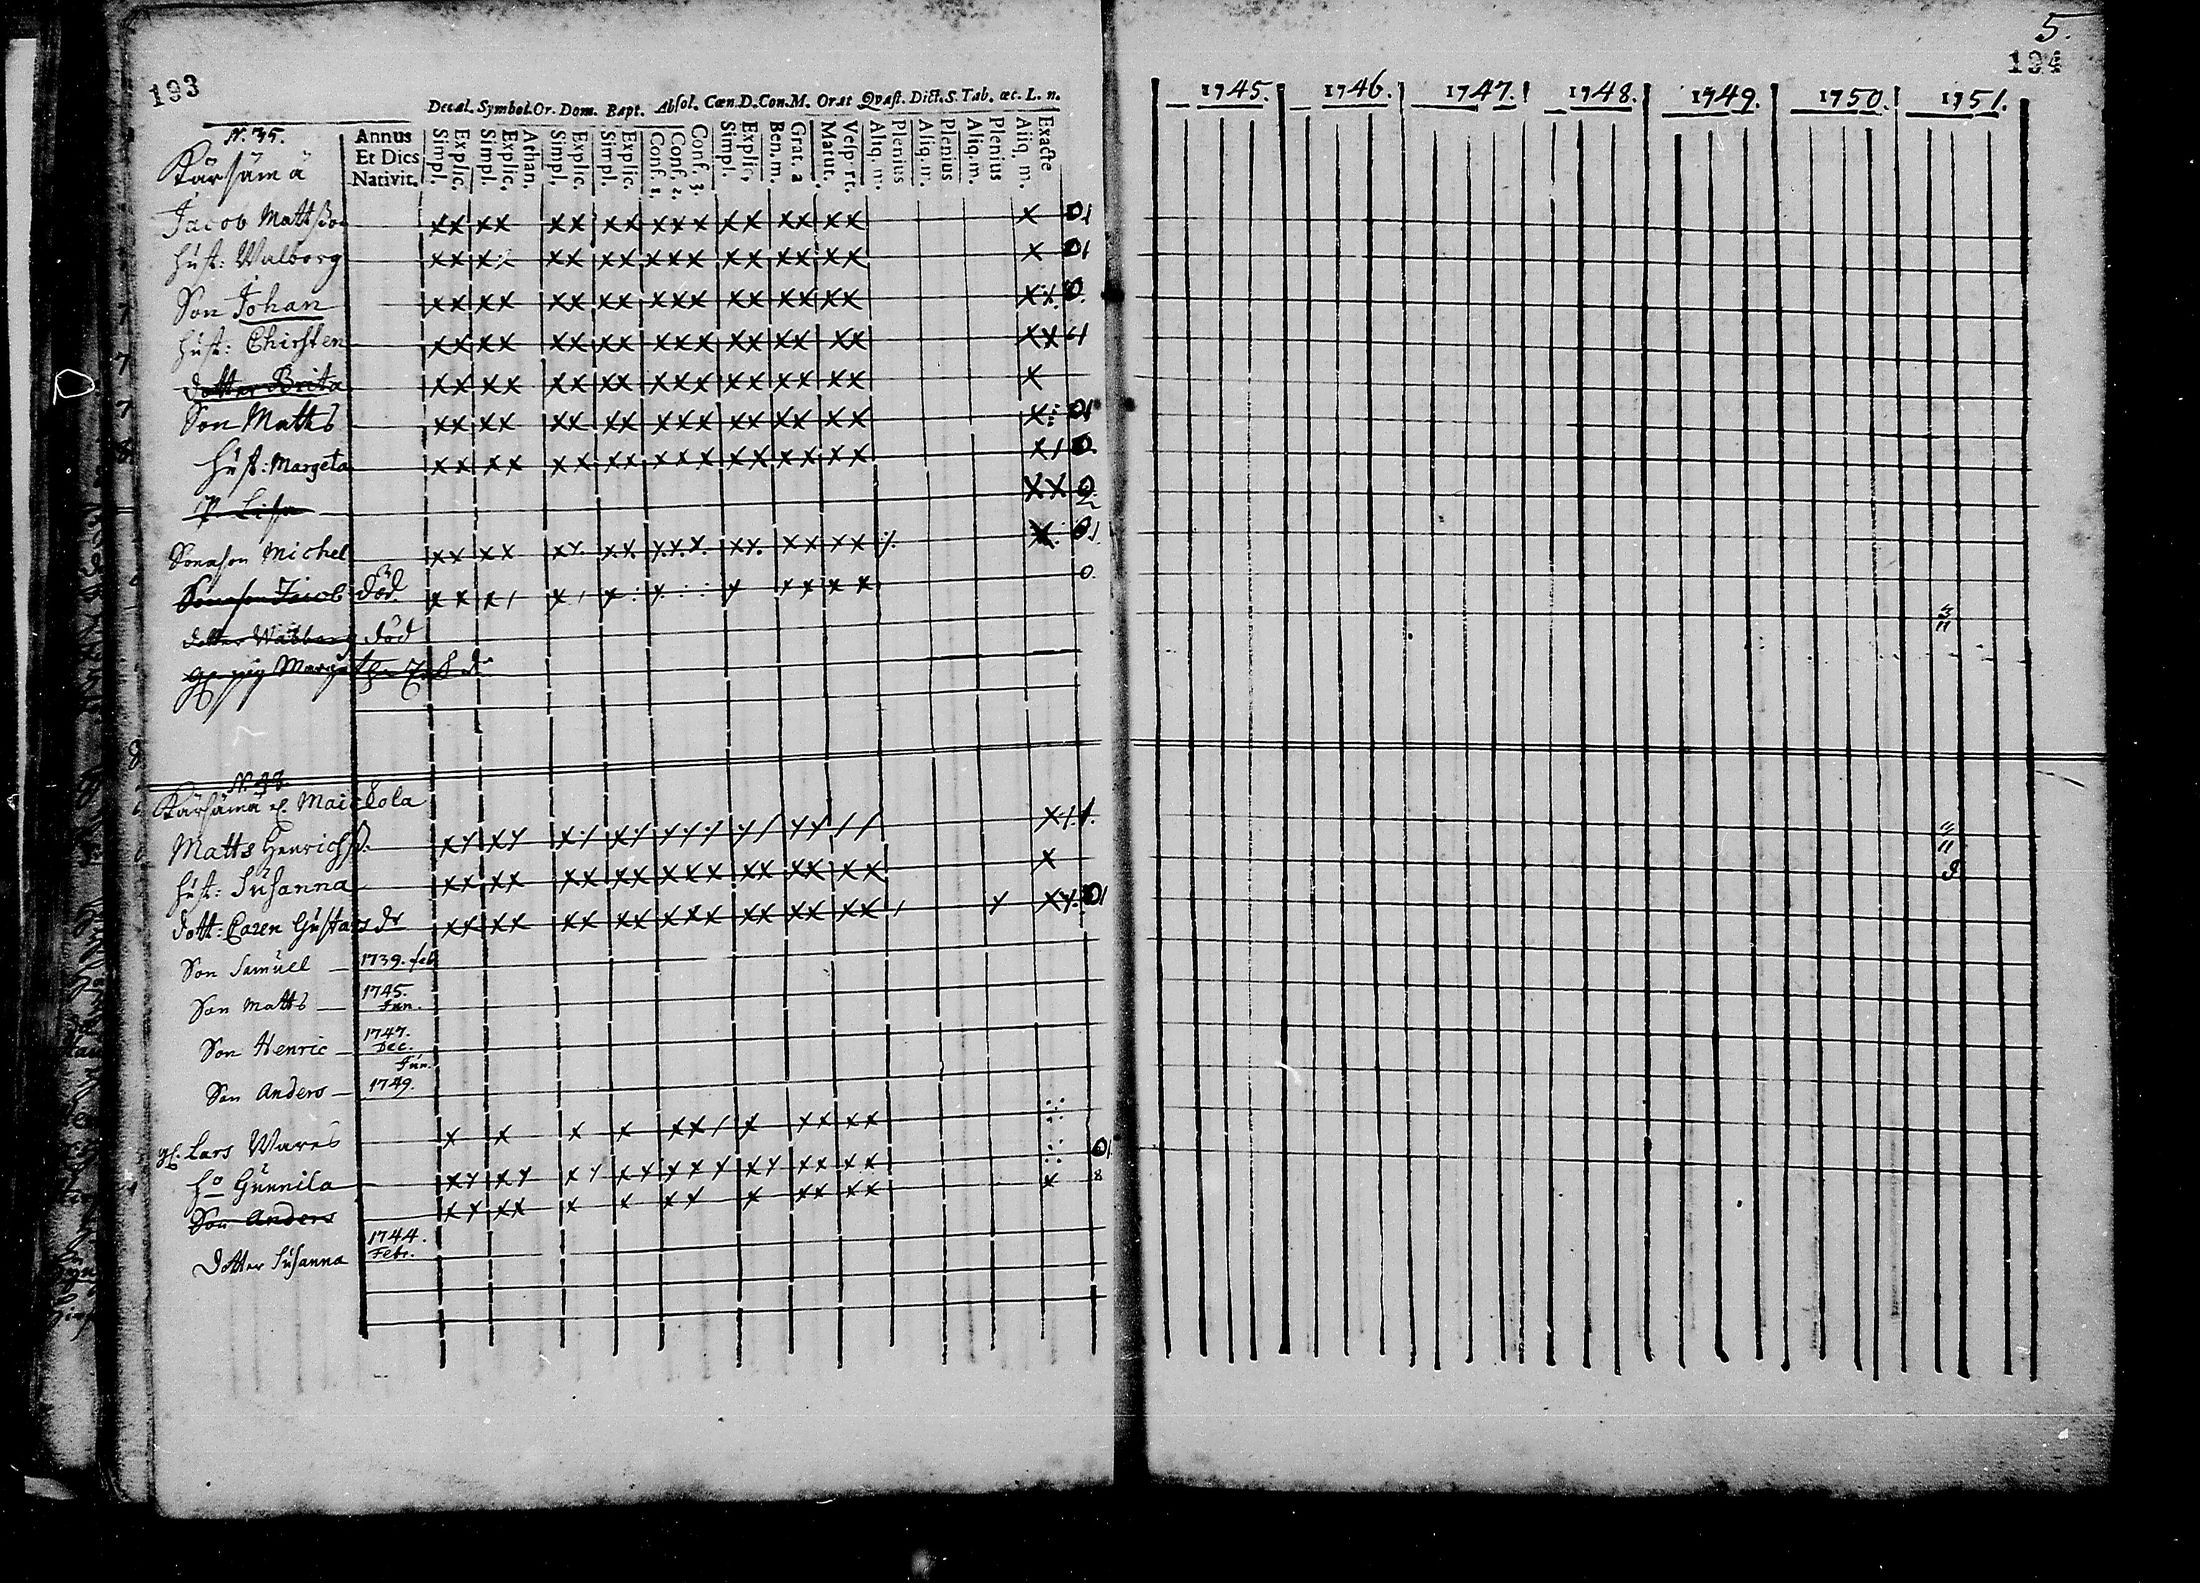 193
Decal. Symbol. Or. Dom. Bapt. Absol. Cœn. D. Con. M. Orat Qvæst. Dict. S. Tab. œc. L. n.
N. 35.
Kärsämä
Annus Et Dies Nativit.
Simpl. Explic. Simpl. Explic. Athan. Simpl. Explic. Simpl. Explic. Conf. 1. Conf. 2. Conf. 3. Simpl. Explic. Ben. m. Grat. a Matut. Vesp rt. Aliq. m. Plenius Aliq. m. Plenius Aliq. m. Plenius Aliq. m. Exacte
Jacob Mattsson
hust: Walborg
Son Johan
hust: Chirsten
dotter Brita
Son Matts
hust: Margeta
P. Lisa
Sonason Michel
Sonason Jacob död
dotter Walborg död
Kärsämä Maickola
Matts Henrichss.
hust: Susanna
dott: Caren Gustavs dr
Son Samuel 1739. feb
Son Matts 1745. Jun.
Son Henric 1747. Dec.
Son Anders 1749. Jun.
gl. Lars Wares
ho Gunnila
Son Anders
Dotter Susanna 1744. Febr.
5.
194
1745. 1746. 1747. 1748. 1749. 1750. 1751.